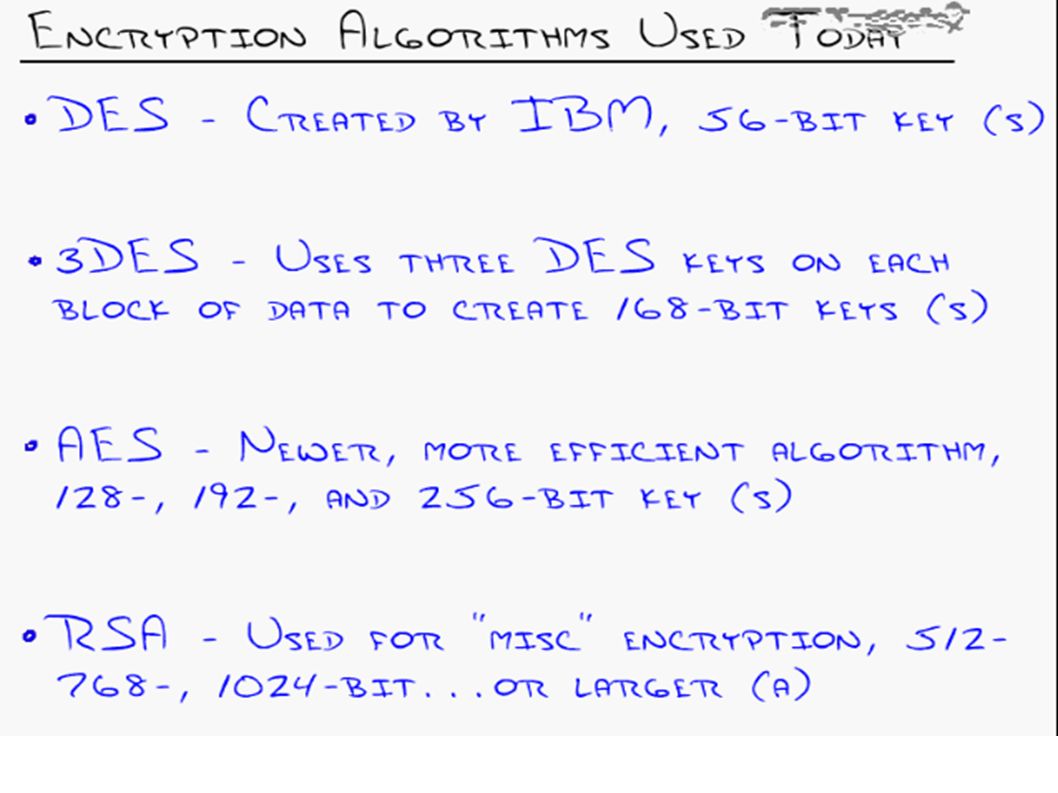 ENCRYPTION ALGORITHMS USED TODAY
• DES - CREATED BY IBM, 56-BIT KEY (S)
• 3DES - USES THREE DES KEYS ON EACH
BLOCK OF DATA TO CREATE 168-BIT KEYS (S)
• AES - NEWER, MORE EFFICIENT ALGORITHM,
128-, 192-, AND 256-BIT KEY (S)
• RSA - USED FOR "MISC" ENCRYPTION, 512-
768-, 1024-BIT...OR LARGER (A)